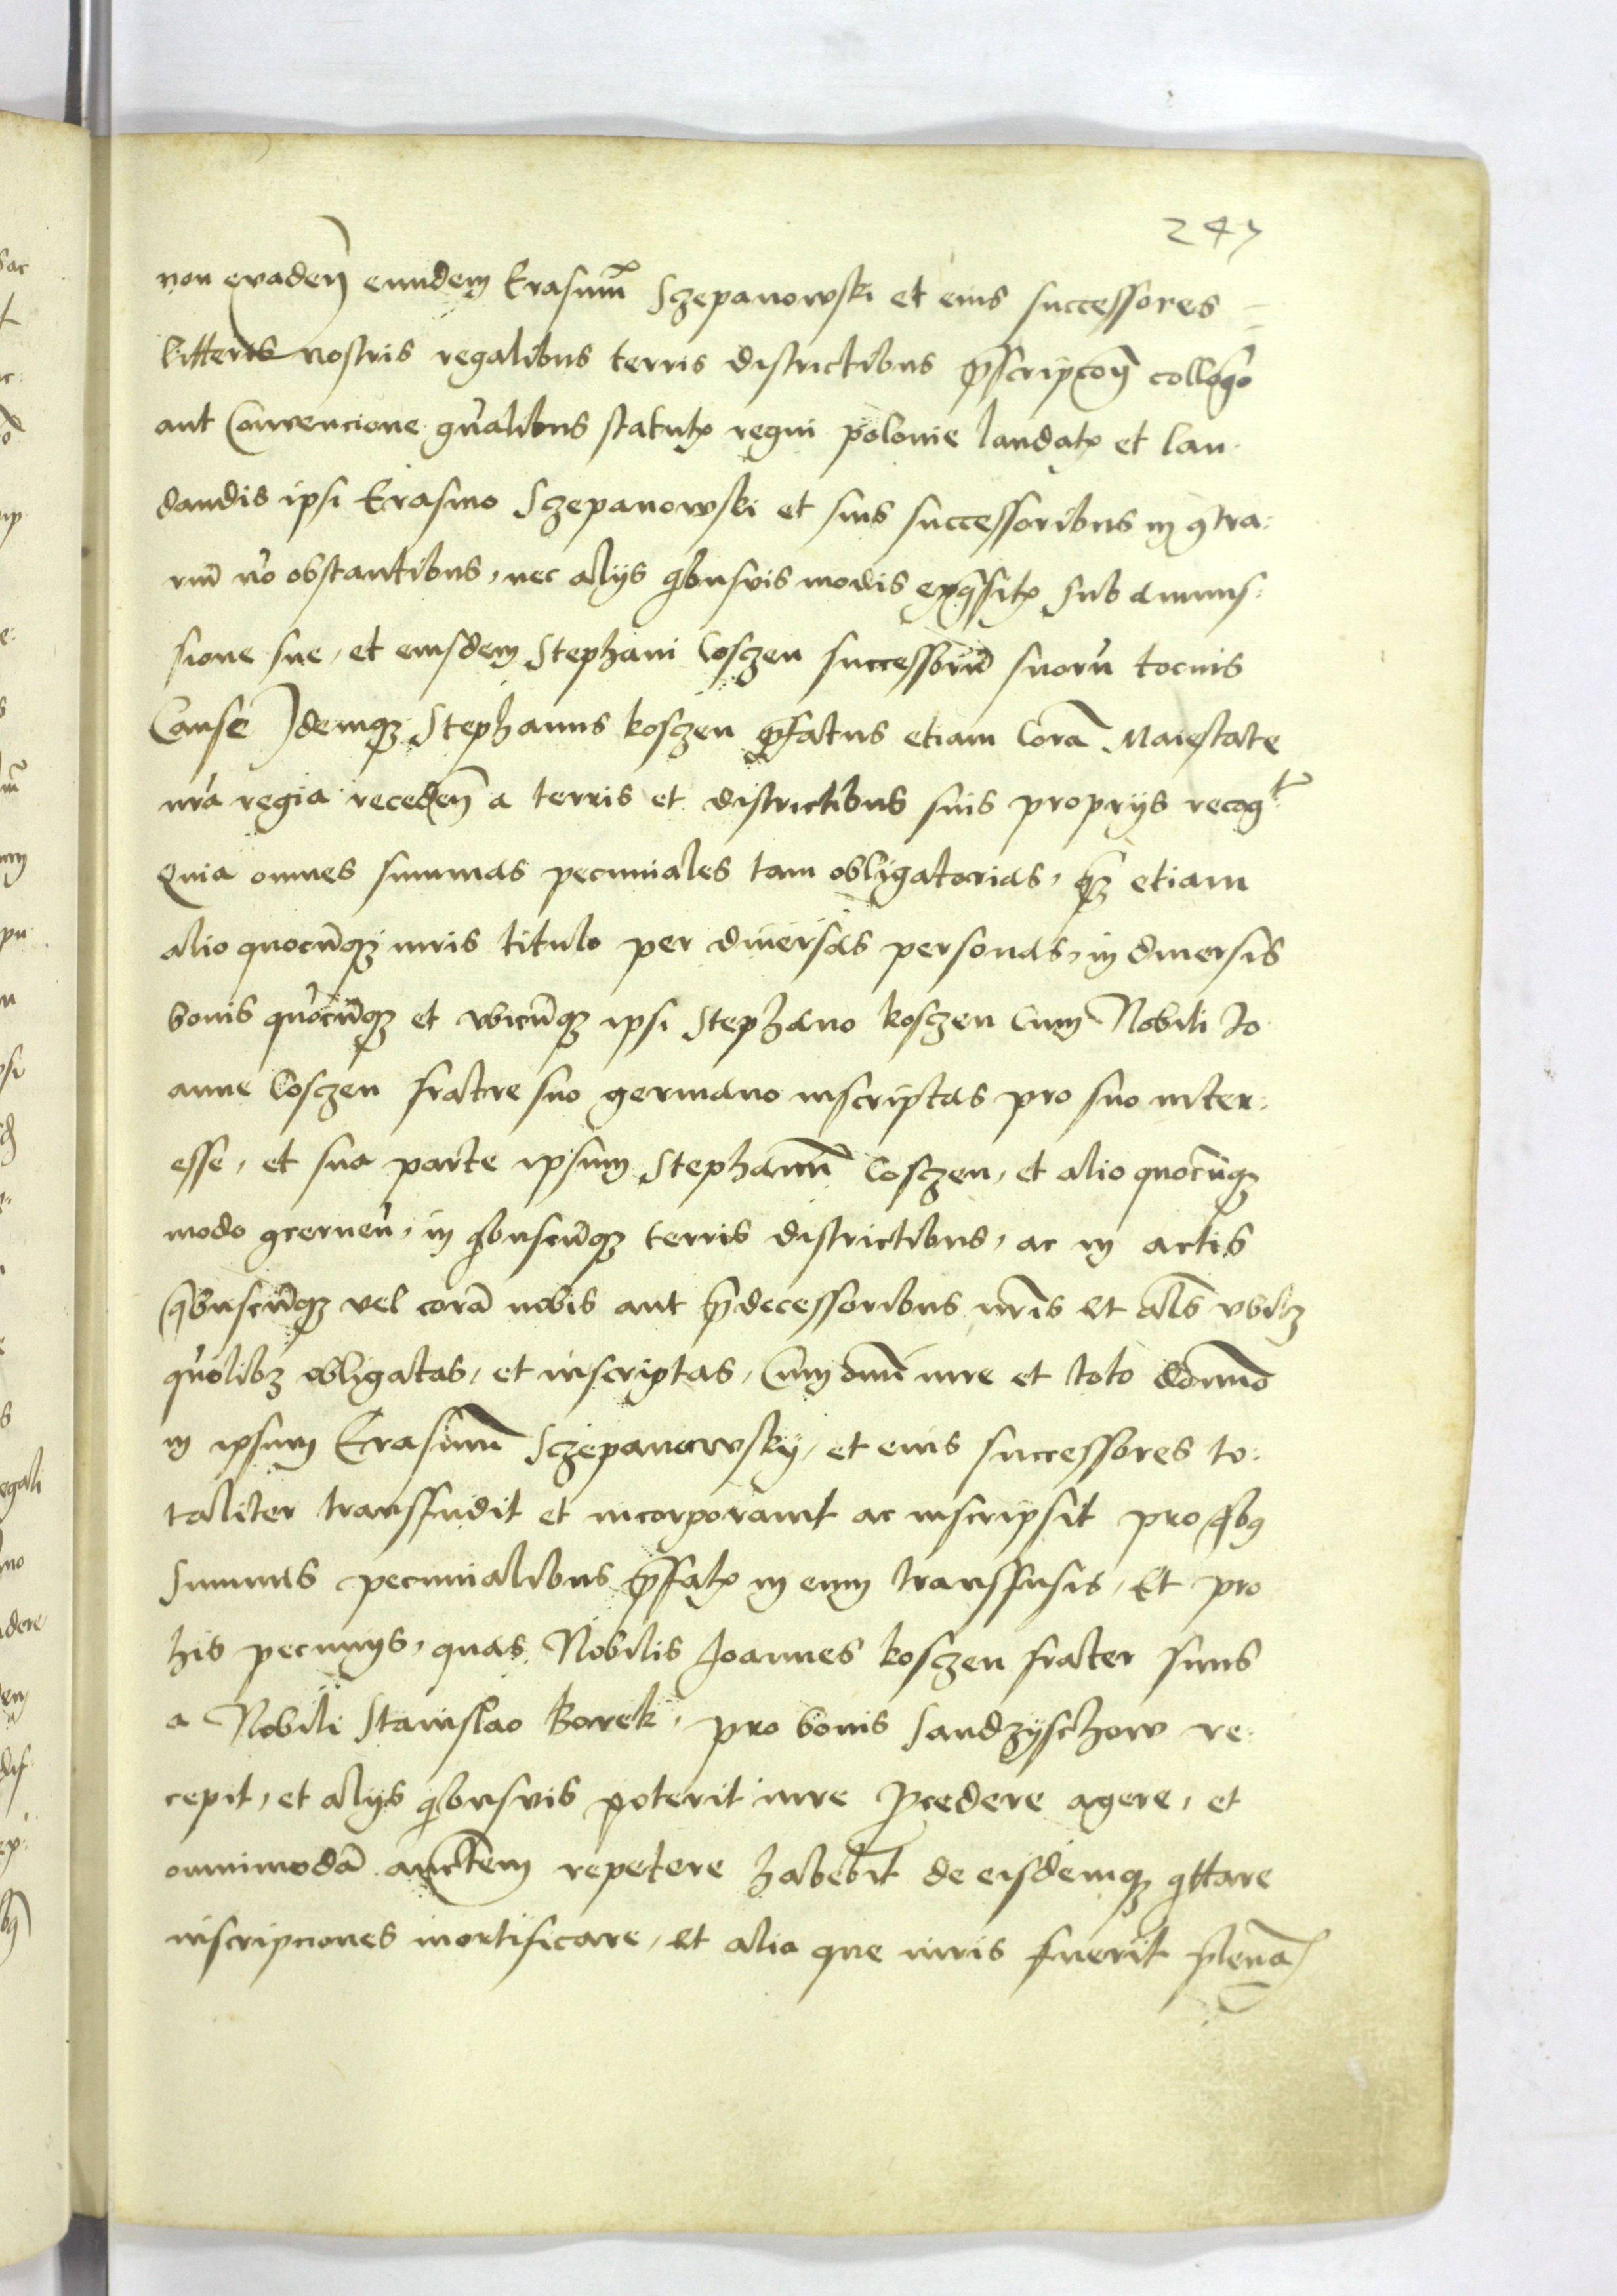 247
non evadeñ eundem Erasmũ Sczepanowski et eius successores
litteris nostris regalibus terris districtibus p̃scripcoñ colloq̃o
aut Convencione gñalibus statutꝭ regni polonie laudatꝭ et lau-
dandis ipsi Erasmo Sczepanowski et suis successoribus in ꝯtra:
riũ nõ obstantibus, nec alijs q̃busvis modis exq̃sitꝭ Sub amms:
sione sue, et eiusdem Stephani Coszen successorũ suorũ tocius
Cause Idemqꝫ Stephanus koszen p̃fatus etiam Corã Maiestate
nrã regia recedeñ a terris et districtibus suis proprijs recogᵗ
Quia omnes summas pecuniales tam obligatorias, qꝫ etiam
alio quocũqꝫ iuris titulo per diuersas personas, in diuersis
bonis quocũqꝫ et vbicũqꝫ ipsi Stephano koszen Cum Nobili Jo
anne Coszen fratre suo germano inscriptas pro suo inter:
esse, et sua parte ipsum Stephanũ Coszen, et alio quocũqꝫ
modo ꝯcerneñ, in q̃buscũqꝫ terris districtibus, ac in actis
q̃buscũqꝫ vel corã nobis aut p̃decessoribus nr̃is et als̃ vbilꝫ
quõlibꝫ obligatas, et inscriptas, Cum om̃i iure et toto domĩo
in ipsum Erasmũ Sczepanowsky, et eius successores to:
taliter transfudit et incorporauit ac inscripsit pro q̃bꝯ
Summis pecunialibus p̃fatꝭ in eum transfusis, Et pro
his pecunijs, quas Nobilis Joannes koszen frater suus
a Nobili Stanislao Borek, pro bonis Sandzyschow re:
cepit, et alijs q̃busvis poterit iure ꝓcedere agere, et
omnimodã auctẽm repetere habebit de eisdemqꝫ q̃ttare
inscripciones mortificare, et alia que iuris fuerit plenã